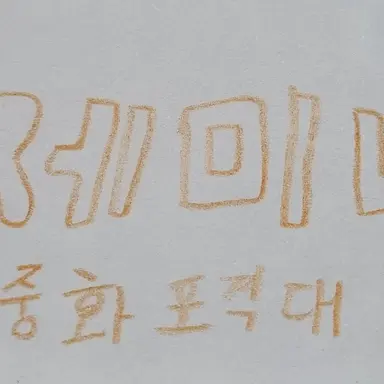 제미
중화 포격대